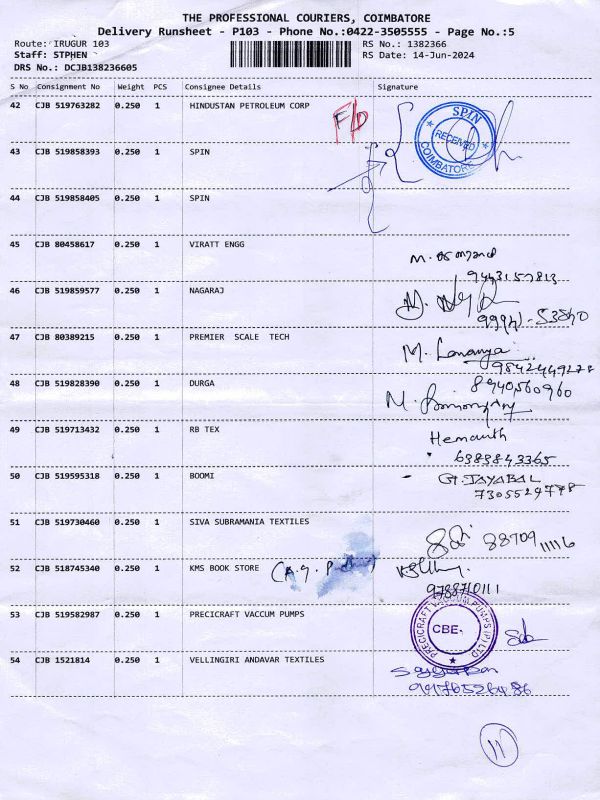 THE PROFESSIONAL COURIERS, COIMBATORE
Delivery Runsheet - P103 - Phone No.:0422-3505555 - Page No.:5
Route: IRUGUR 103
RS No.: 1382366
Staff: STPHEN
RS Date: 14-Jun-2024
DRS No.: DCJB138236605
S No Consignment No Weight PCS Consignee Details Signature
42 CJB 519763282 0.250 1 HINDUSTAN PETROLEUM CORP F/D
SPIN RECEIVED COIMBATORE
43 CJB 519858393 0.250 1 SPIN
44 CJB 519858405 0.250 1 SPIN
45 CJB 80458617 0.250 1 VIRATT ENGG
9443157813
46 CJB 519859577 0.250 1 NAGARAJ
47 CJB 80389215 0.250 1 PREMIER SCALE TECH
M. Lananya
9842449278
48 CJB 519828390 0.250 1 DURGA
8940560960
49 CJB 519713432 0.250 1 RB TEX
Hemanth
6383843365
50 CJB 519595318 0.250 1 BOOMI
G. JAYABAL
7305529778
51 CJB 519730460 0.250 1 SIVA SUBRAMANIA TEXTILES
8870911116
52 CJB 518745340 0.250 1 KMS BOOK STORE
9788710111
53 CJB 519582987 0.250 1 PRECICRAFT VACCUM PUMPS
PRECICRAFT VACUUM PUMPS (P) LTD CBE.
54 CJB 1521814 0.250 1 VELLINGIRI ANDAVAR TEXTILES
9976526486
11